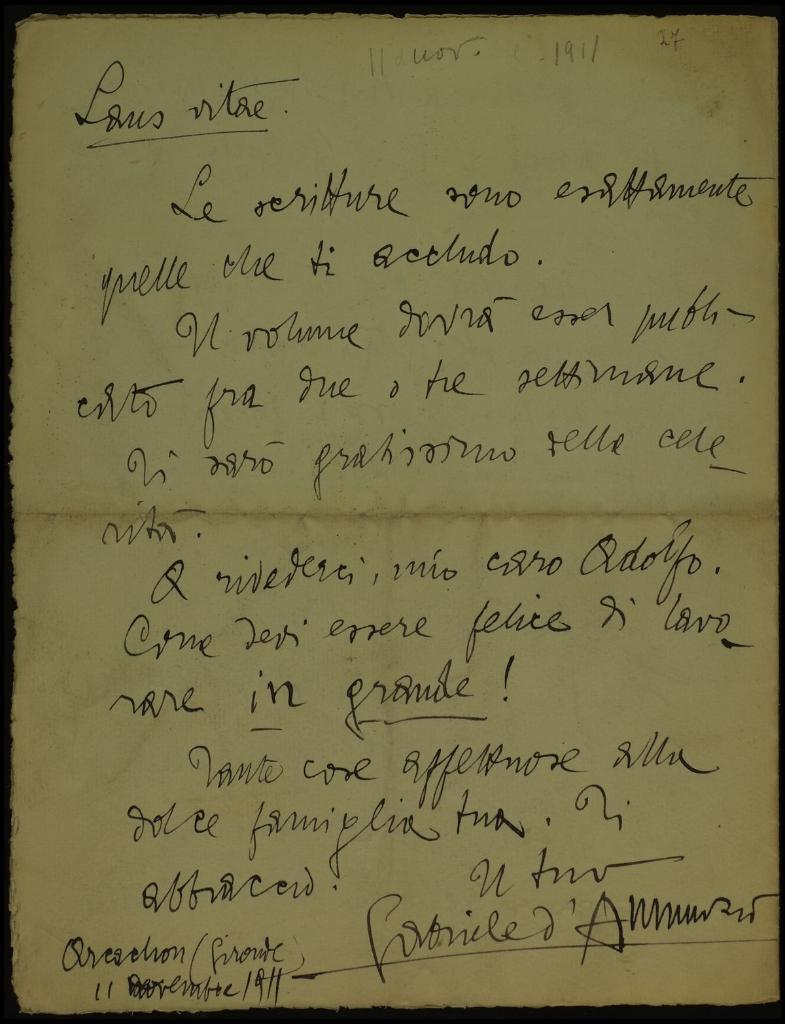 11 nov. 1911 27
Laus vitae.
Le scritture sono esattamente
quelle che ti accludo.
Il volume dovrà esser pubbli-
cato fra due o tre settimane.
Ti sarò gratissimo della cele-
rità.
A rivederci, mio caro Adolfo.
Come devi essere felice di lavo-
rare in grande!
Tante cose affettuose alla
dolce famiglia tua. Ti
abbraccio.
Il tuo
Gabriele d'Annunzio
Arcachon (Gironde)
11 novembre 1911